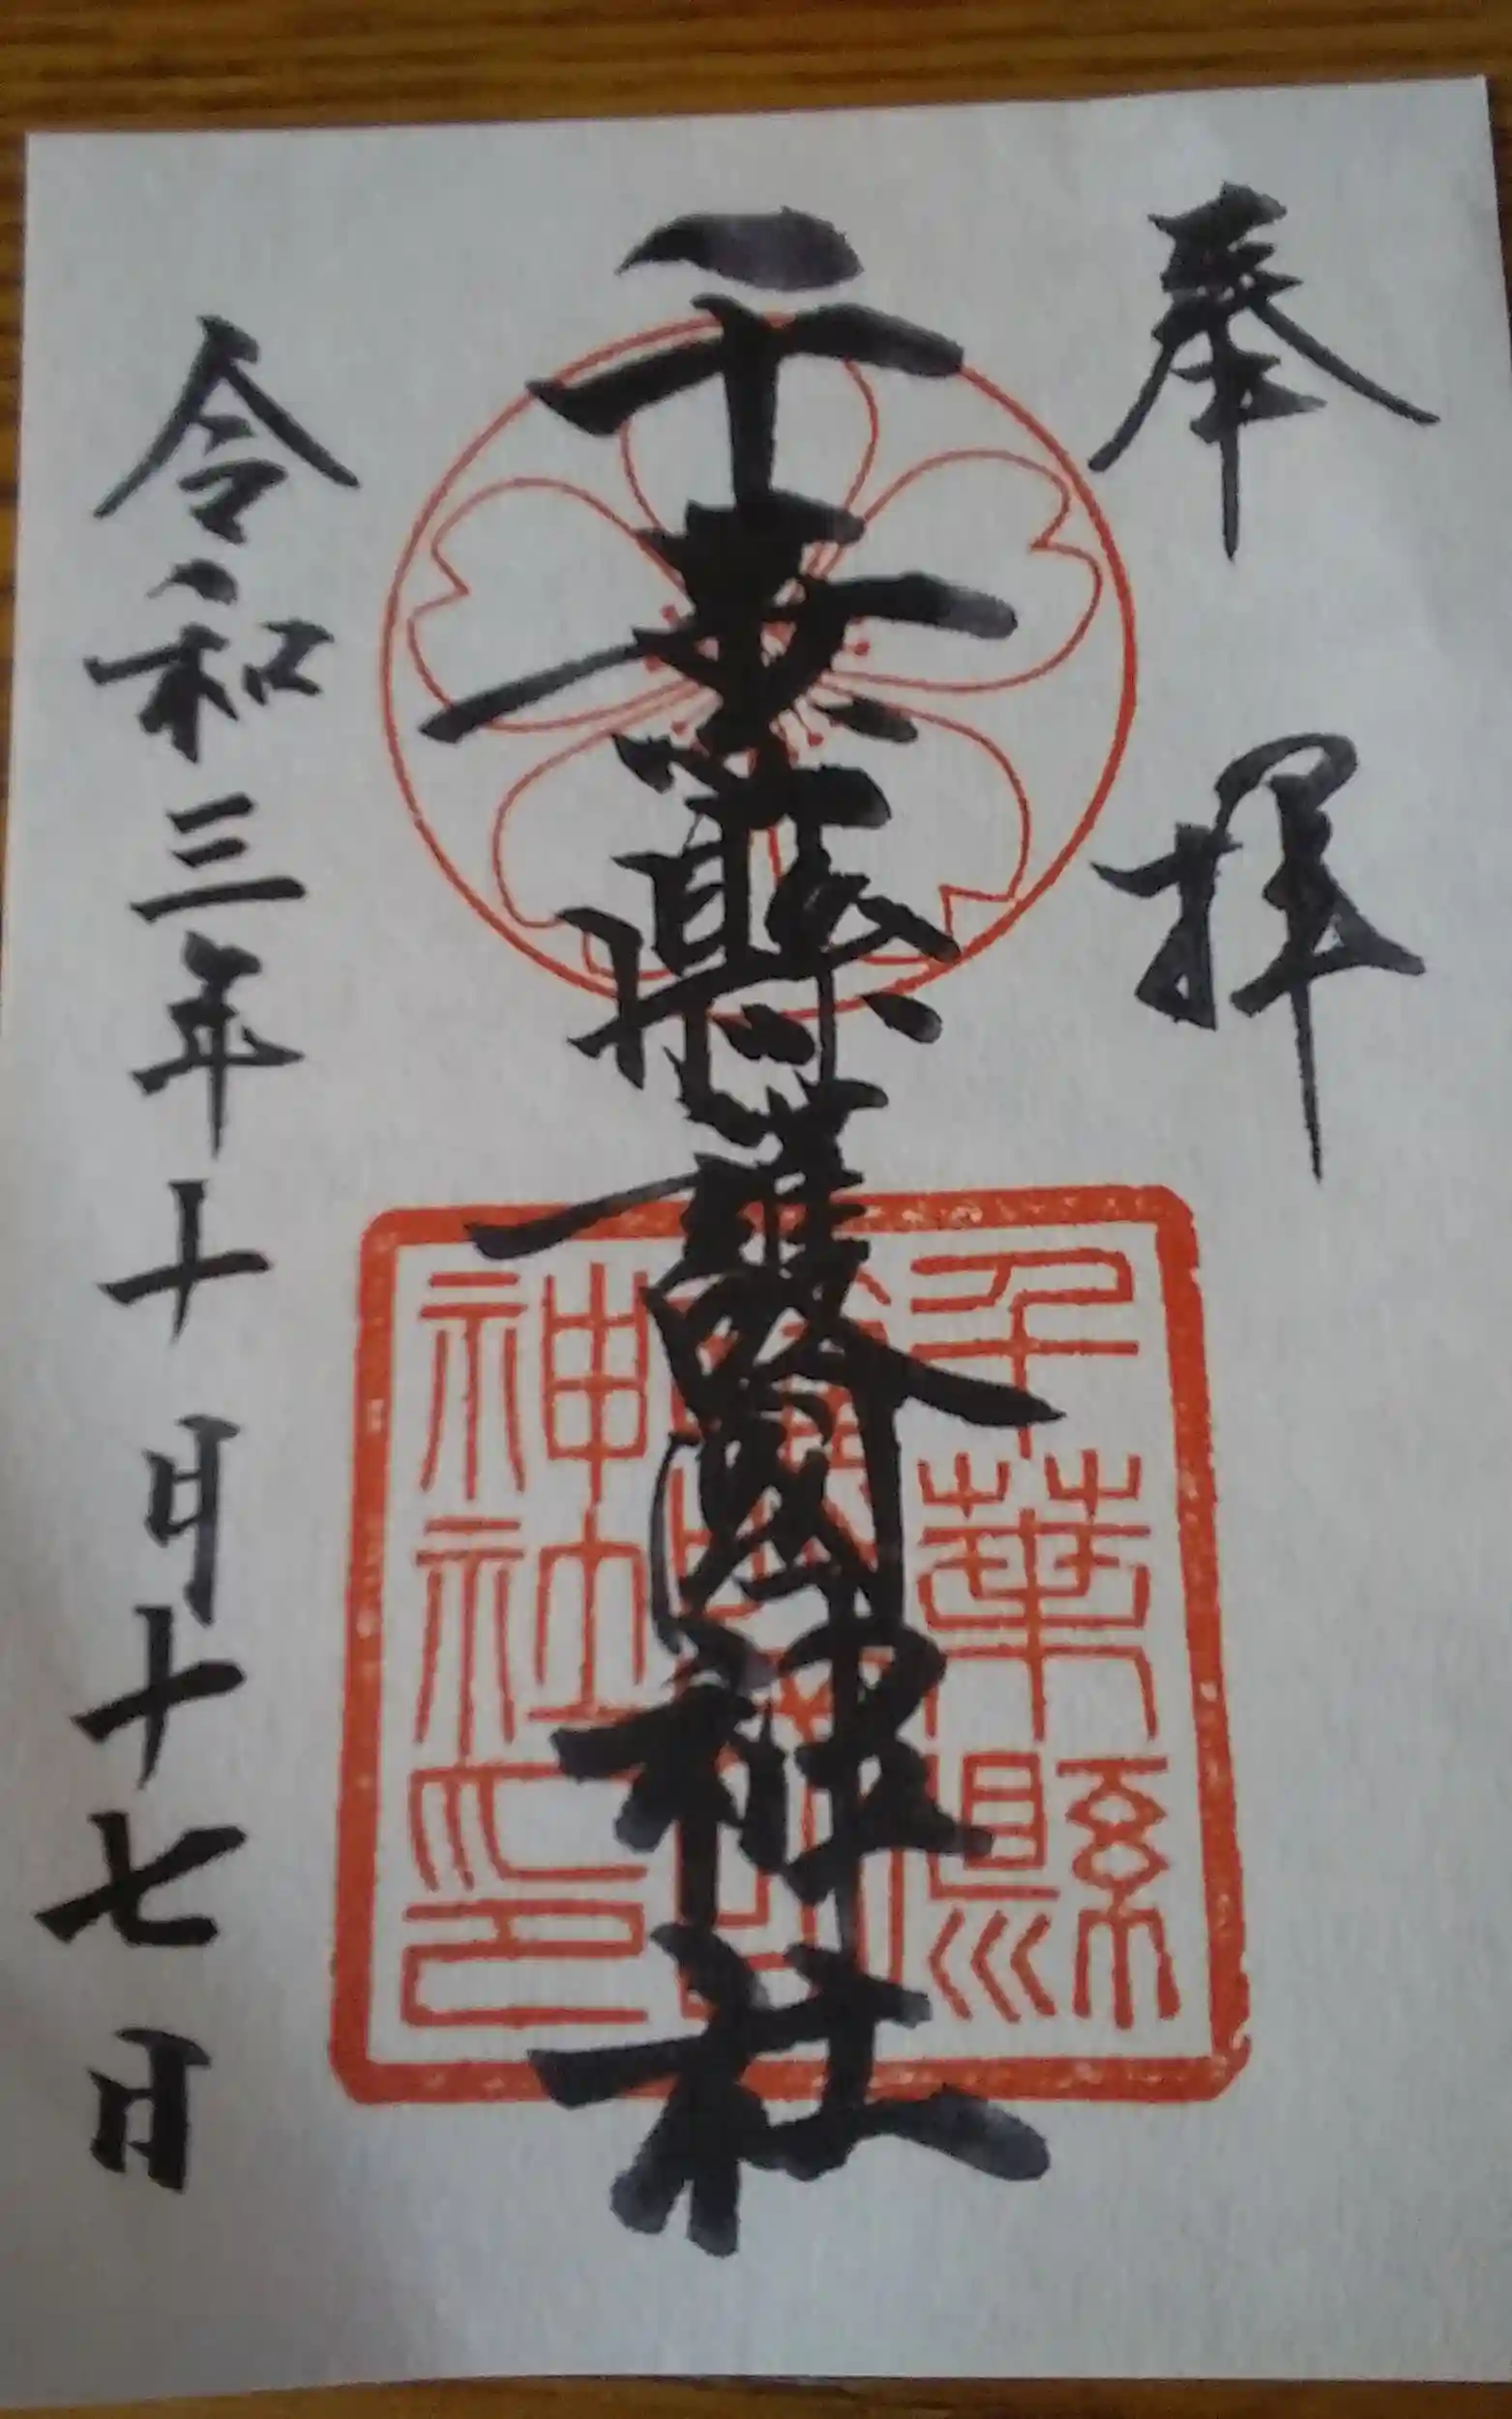 奉拝
千葉縣護國神社
千葉縣
護國
神社印
令和三年十月十七日